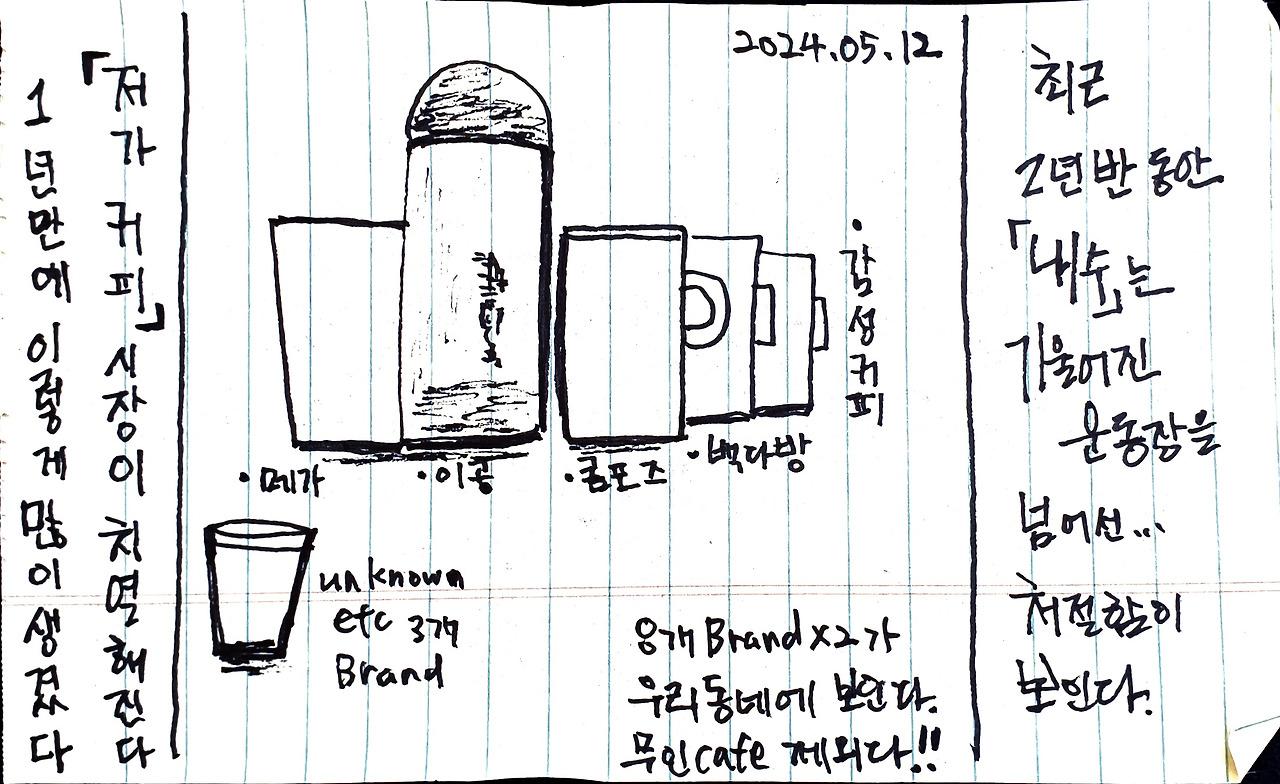 「저가 커피」시장이 치열해진다
1년만에 이렇게 많이 생겼다
2024.05.12
•감성커피
•메가
•이공
•컴포즈
•빽다방
unknown
etc 3개
Brand
8개 Brand x2가
우리동네에 보인다.
무인cafe 제외다!!
최근
2년 반 동안
「내수」는
기울어진
운동장을
넘어선...
처절함이
보인다.